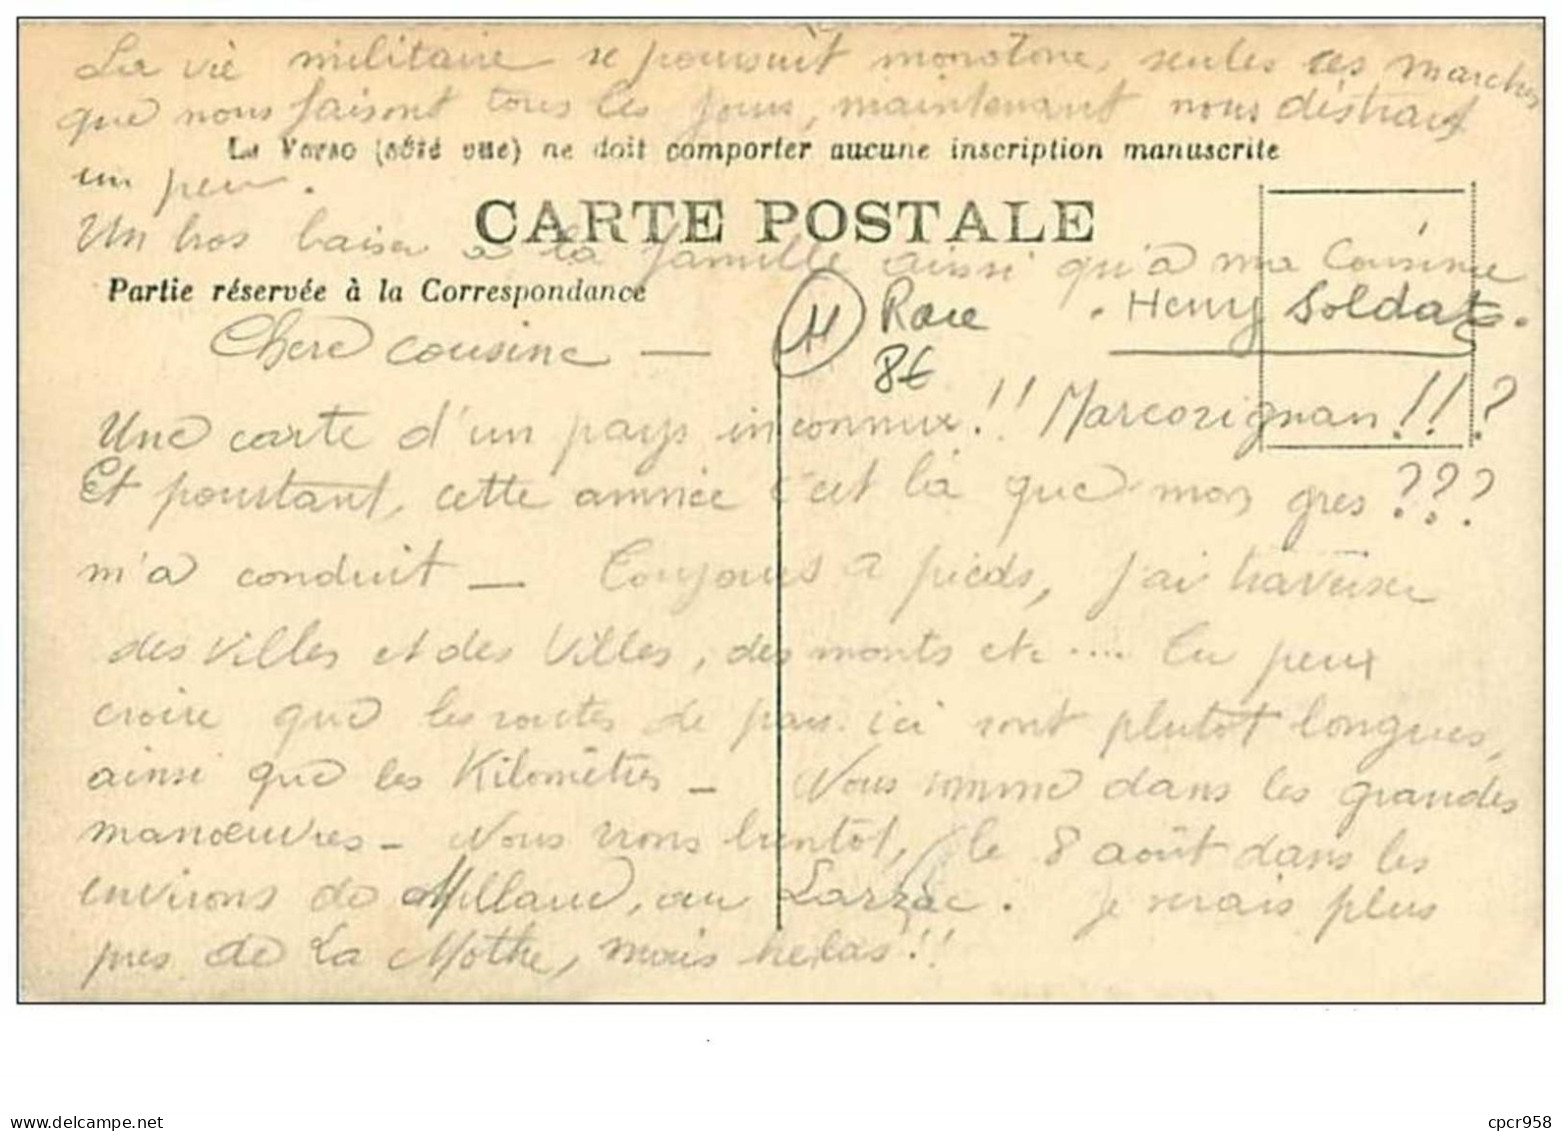 La vie militaire se poursuit monotone, seules ces marches
que nous faisont tous les jours, maintenant nous distrait
Le Verso (côté vue) ne doit comporter aucune inscription manuscrite
un peu.
CARTE POSTALE
Un gros baiser à la famille ainsi qu'à ma Cousine
Partie réservée à la Correspondance
Henry Soldat.
H Rare
8€
Chere cousine —
Une carte d'un pays inconnux!! Marcorignan!!?
Et pourtant, cette année c'est là que mon gres???
m'a conduit — Toujours a pieds, j'ai traverser
des villes et des villes, des monts etc.... Tu peux
croire que les routes de par ici sont plutot longues,
ainsi que les Kilomètres — Nous somme dans les grandes
manœuvres — Nous irons bientôt, le 8 août dans les
environs de Millaud, au Larzac. Je serais plus
pres de La Mothe, mais helas!!
www.delcampe.net
cpcr958